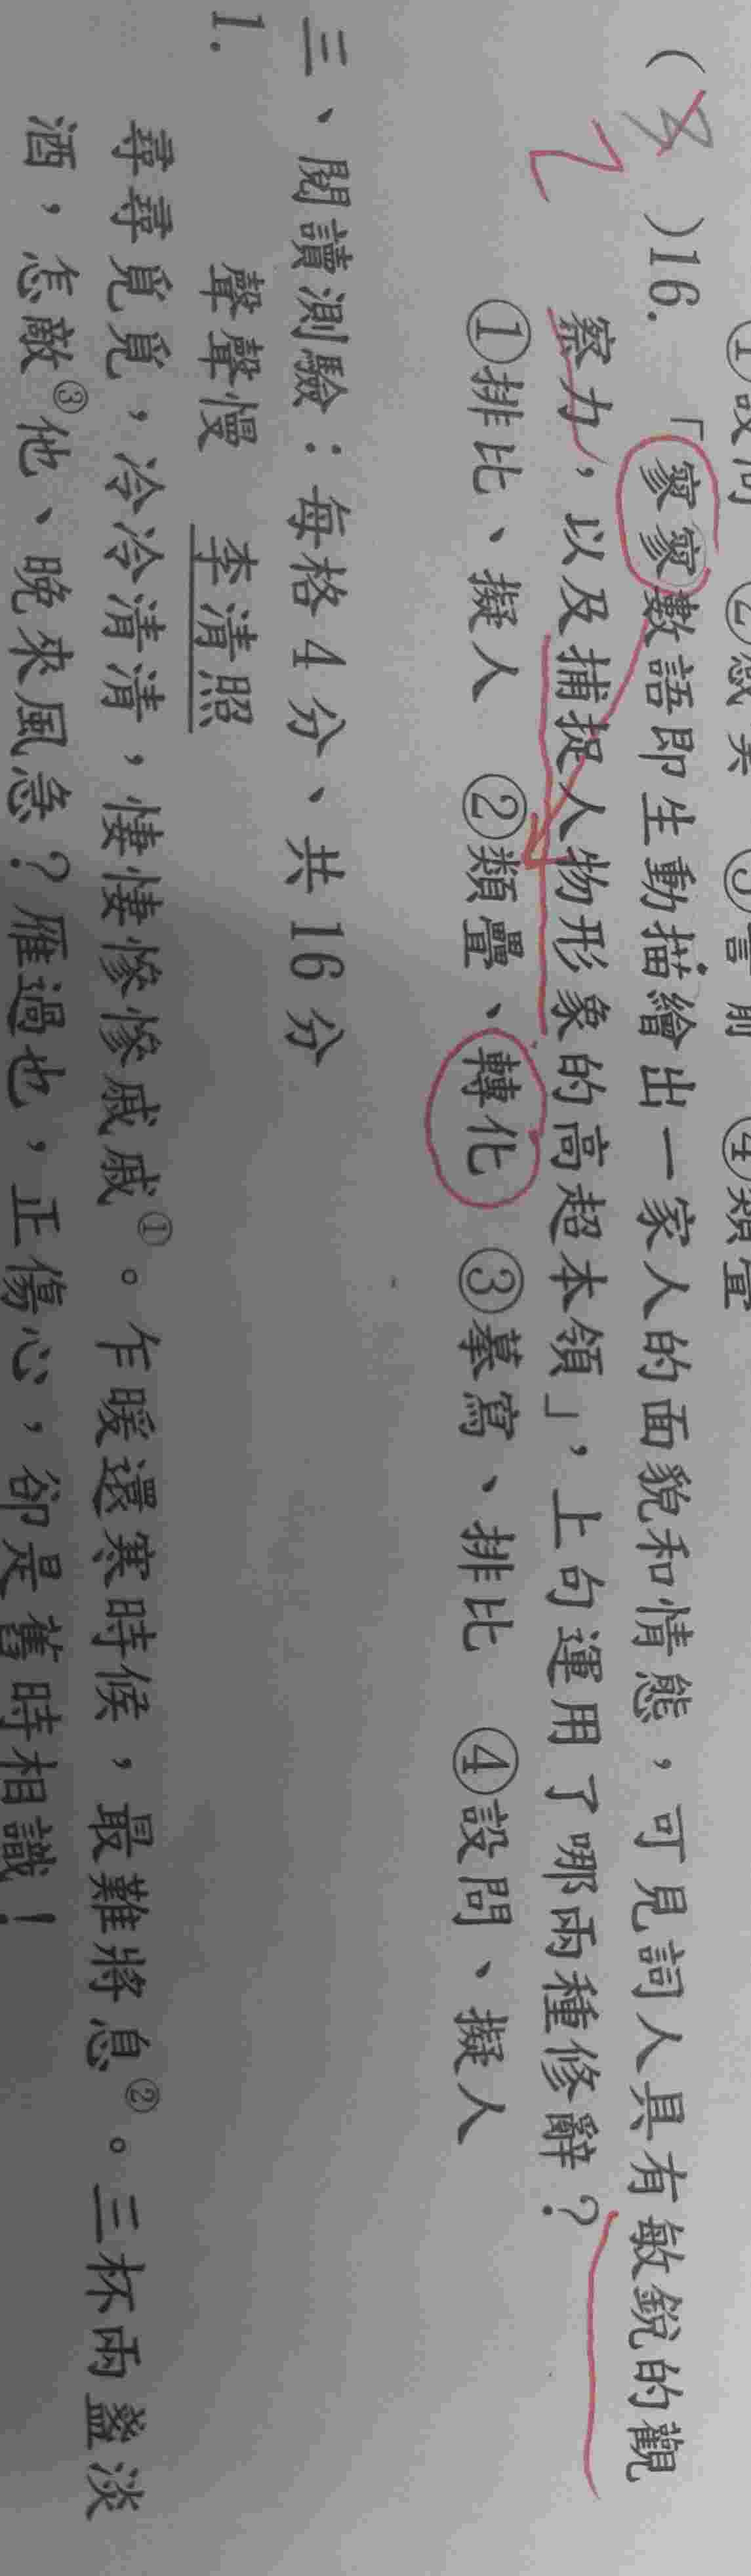 (  )16.「寥寥數語即生動描繪出一家人的面貌和情態，可見詞人具有敏銳的觀
2
察力，以及捕捉人物形象的高超本領」，上句運用了哪兩種修辭？
①排比、擬人 ②類疊、轉化 ③摹寫、排比 ④設問、擬人
三、閱讀測驗：每格4分、共16分
1.
聲聲慢 李清照
尋尋覓覓，冷冷清清，悽悽慘慘戚戚①。乍暖還寒時候，最難將息②。三杯兩盞淡
酒，怎敵③他、晚來風急？雁過也，正傷心，卻是舊時相識！